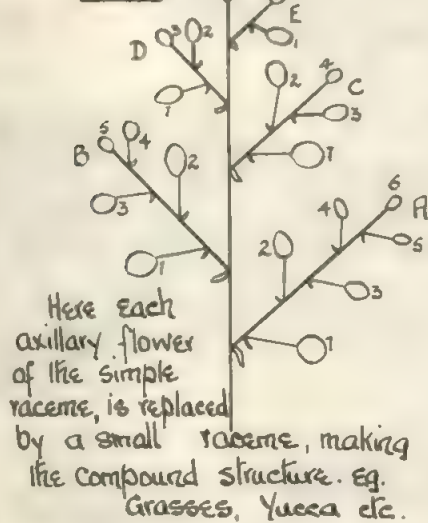 E
1
D
3
2
1
2
4
C
3
1
B
5
4
2
3
1
6
A
4
5
2
3
1
Here each
axillary flower
of the simple
raceme, is replaced
by a small raceme, making
the compound structure. eg.
Grasses, Yucca etc.